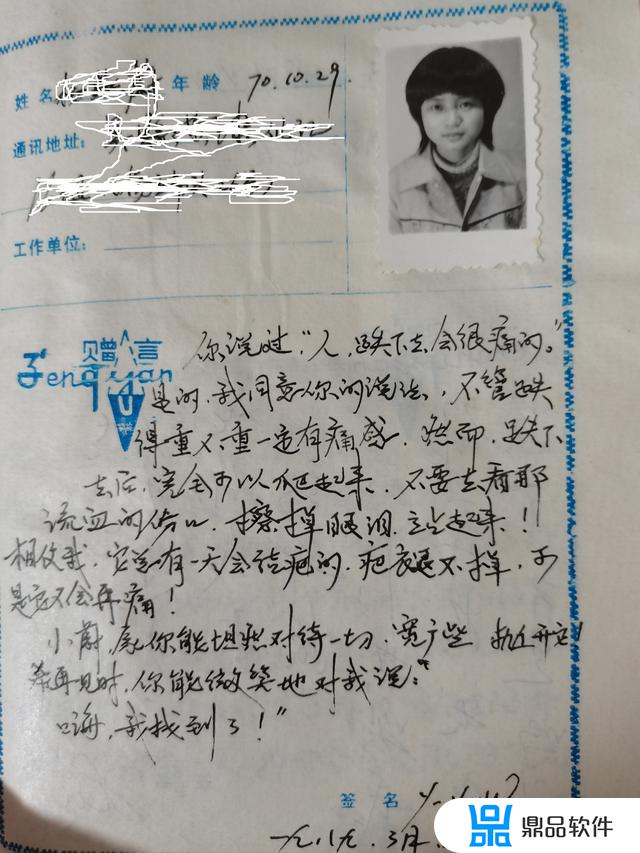 姓名 年龄 70.10.29.
通讯地址:
工作单位:
赠言
Zeng yan
你说过,“人,跌下去会很痛的。”
是的,我同意你的说法,不管跌
得重不重一定有痛感.然而,跌下
去后,完全可以爬起来,不要去看那
流血的伤口,擦掉眼泪,站起来!
相信我,它总有一天会结疤的,疤衰退不掉,可
是它不会再痛!
小蔚,愿你能坦然对待一切,宽广些
再见时,你能微笑地对我说:“
嗨,我找到了!”
签名
一九八九.3月.
鼎品软件